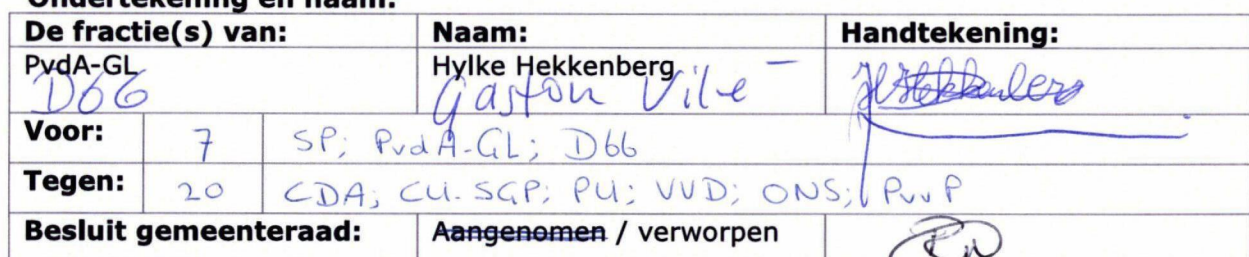 Ondertekening en naam:
De fractie(s) van: Naam: Handtekening:
PvdA-GL Hylke Hekkenberg
D66 Gaston
Voor: 7 SP; PvdA-GL; D66
Tegen: 20 CDA; CU-SGP; PU; VVD; ONS; PvvP
Besluit gemeenteraad: Aangenomen / verworpen